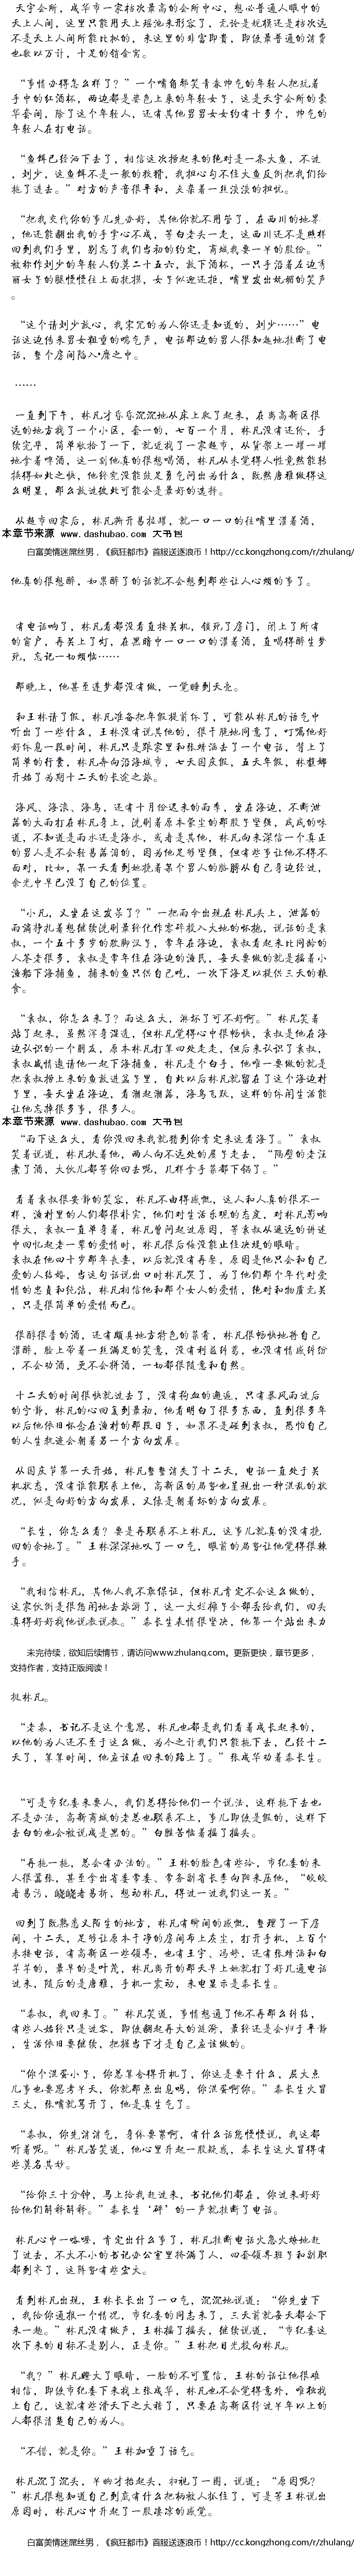 天宇会所，成华市一家档次最高的会所中心，想必普通人眼中的
天上人间，这里只能用天上瑶池来形容了，无论是规模还是档次远
不是天上人间所能比拟的，来这里的非富即贵，即使最普通的消费
也数以万计，十足的销金窝。
“事情办得怎么样了？”一个嘴角邪笑青春帅气的年轻人把玩着
手中的红酒杯，两边都是姿色上乘的年轻女子，这是天宇会所的豪
华套间，除了这个年轻人，还有其他男男女女约有十多个，帅气的
年轻人在打电话。
“鱼饵已经洒下去了，相信这次捞起来的绝对是一条大鱼，不过
，刘少，这鱼饵不是一般的狡猾，我担心勾不住大鱼反倒把我们给
拖了进去。”对方的声音很平和，夹杂着一丝淡淡的担忧。
“把我交代你的事儿先办好，其他你就不用管了，在西川的地界
，他还能翻出我的手掌心不成，等白老头一走，这西川还不是照样
回到我们手里，别忘了我们当初的约定，商城我要一半的股份。”
被称作刘少的年轻人约莫二十五六，放下酒杯，一只手沿着左边秀
丽女子的腿慢慢往上面抚摸，女子似迎还拒，嘴里发出妩媚的笑声
。
“这个请刘少放心，我宋冗的为人你还是知道的，刘少……”电
话这边传来男女粗重的喘气声，电话那边的男人很知趣地挂断了电
话，整个房间陷入*靡之中。
……
一直到下午，林凡才昏昏沉沉地从床上爬了起来，在离高新区很
远的地方找了一个小区，套一的，七百一个月，林凡没有还价，手
续完毕，简单收拾了一下，就近找了一家超市，从货架上一罐一罐
地拿着啤酒，这一刻他真的很想喝酒，林凡从未觉得人性竟然能转
换得如此之快，他经常没能鼓足勇气问出为什么，既然唐雅做得这
么明显，那么放过彼此可能会是最好的选择。
从超市回家后，林凡撕开易拉罐，就一口一口的往嘴里灌着酒，
本章节来源 www.dashubao.com 大书包
白富美情迷屌丝男，《疯狂都市》首服送逐浪币！http://cc.kongzhong.com/r/zhulang/
他真的很想醉，如果醉了的话就不会想到那些让人心烦的事了。
有电话响了，林凡看都没看直接关机，锁死了房门，闭上了所有
的窗户，再关上了灯，在黑暗中一口一口的灌着酒，直喝得醉生梦
死，忘记一切烦恼……
那晚上，他甚至连梦都没有做，一觉睡到天亮。
和王林请了假，林凡准备把年假提前休了，可能从林凡的语气中
听出了一些什么，王林没有说其他的，很干脆地同意了，叮嘱他好
好休息一段时间，林凡只是跟家里和张靖洁去了一个电话，背上了
简单的行囊，林凡奔向沿海城市，七天国庆假，五天年假，林毅娜
开始了为期十二天的长途之旅。
海风、海浪、海鸟，还有十月份迟来的雨季，坐在海边，不断泄
落的大雨打在林凡身上，洗刷着原本蒙尘的那股子坚强，咸咸的味
道，不知道是雨水还是海水，或者是其他，林凡向来深信一个真正
的男人是不会轻易落泪的，因为他足够坚强，但有些事让他不得不
面对，比如，某一天看到她挽着某个男人的胳膊从自己身边经过，
余光中早已没了自己的位置。
“小凡，又坐在这发呆了？”一把雨伞出现在林凡头上，泄落的
雨滴挣扎着想继续洗刷最终化作零碎投入大地的怀抱，说话的是袁
叔，一个五十多岁的胶脚汉子，常年在海边，袁叔看起来比同龄的
人苍老很多，袁叔是常年住在海边的渔民，每天要做的就是摇着小
渔船下海捕鱼，捕来的鱼只供自己吃，一次下海足以提供三天的粮
食。
“袁叔，你怎么来了？雨这么大，淋坏了可不好啊。”林凡笑着
站了起来，虽然浑身湿透，但林凡觉得心中很畅快，袁叔是他在海
边认识的一个朋友，原本林凡打算四处走走，但后来认识了袁叔，
袁叔盛情邀请他一起下海捕鱼，林凡是个白手，他唯一要做的就是
把袁叔捞上来的鱼放进篮子里，自此以后林凡就留在了这个海边村
子里，每天坐在海边，看潮起潮落，海鸟飞跃，这样的休闲生活能
让他忘掉很多事，很多人。
本章节来源 www.dashubao.com 大书包
“雨下这么大，看你没回来我就猜到你肯定来这看海了。”袁叔
笑着说道，林凡扶着他，两人向不远处的屋子走去，“隔壁的老汪
煮了酒，大伙儿都等你回去呢，几样拿手菜都下锅了。”
看着袁叔很安详的笑容，林凡不由得感慨，这人和人真的很不一
样，渔村里的人们都很朴实，他们对生活乐观的态度，对林凡影响
很大，袁叔一直单身着，林凡曾问起过原因，等袁叔从遥远的讲述
中回忆起老一辈的爱情时，林凡很后悔没能止住决堤的眼睛。
袁叔在他四十岁那年丧妻，以后就没有再娶，原因是他只会和自己
爱的人结婚，当这句话说出口时林凡哭了，为了他们那个年代对爱
情的忠贞和纯洁，林凡相信他和那个女人的爱情，绝对和物质无关
，只是很简单的爱情而已。
很醇很香的酒，还有颇具地方特色的菜肴，林凡很畅快地将自己
灌醉，脸上带着一丝满足的笑意，没有利益纠葛，也没有情感纠纷
，不会劝酒，更不会拼酒，一切都很随意和自然。
十二天的时间很快就过去了，没有狗血的邂逅，只有暴风雨过后
的宁静，林凡的心回复到最初，他看明白了很多东西，直到很多年
以后他依旧怀念在渔村的那段日子，如果不是碰到袁叔，恐怕自己
的人生轨迹会朝着另一个方向发展。
从国庆节第一天开始，林凡整整消失了十二天，电话一直处于关
机状态，没有谁能联系上他，高新区的局势也呈现出一种混乱的状
况，似是向好的方向发展，又像是朝着坏的方向发展。
“长生，你怎么看？要是再联系不上林凡，这事儿就真的没有挽
回的余地了。”王林深深地叹了一口气，眼前的局势让他觉得很棘
手。
“我相信林凡，其他人我不敢保证，但林凡肯定不会这么做的，
这家伙倒是很悠闲地去旅游了，这一大烂摊子全部丢给我们，回头
真得好好我他说教说教。”秦长生表情很坚决，他第一个站出来力
未完待续，欲知后续情节，请访问www.zhulang.com。更新更快，章节更多，
支持作者，支持正版阅读！
挺林凡。
“老秦，书记不是这个意思，林凡也都是我们看着成长起来的，
以他的为人还不至于这么做，为今之计我们只能拖下去，已经十二
天了，算算时间，他应该在回来的路上了。”张成华劝着秦长生。
“可是市纪委来要人，我们总得给他们一个说法，这样拖下去也
不是办法，高新商城的老总也联系不上，事儿即使是假的，这样下
去白的也会被说成是黑的。”白胜苦恼着摇了摇头。
“再拖一拖，总会有办法的。”王林的脸色有些冷，市纪委的来
人很嚣张，甚至拿出省委常委、常务副省长李向阳来压他，“皎皎
者易污，峣峣者易折，想动林凡，得过一过我们这一关。”
回到了既熟悉又陌生的地方，林凡有瞬间的感慨，整理了一下房
间，十二天，足够让原本干净的房间布上灰尘，打开手机，上百个
未接电话，有高新区一些领导，也有王宇、冯婷，还有张靖洁和白
芊芊的，最早的是叶茂，林凡离开的那天早上她就打了好几通电话
过来，随后的是唐雅，手机一震动，来电显示是秦长生。
“秦叔，我回来了。”林凡笑道，事情想通了他不再那么纠结，
有些人始终只是过客，即使翻起再大的涟漪，最终还是会归于平静
，生活依旧要继续，把握当下才是自己应该做的。
“你个混蛋小子，你总算舍得开机了，你这是要干什么，屁大点
儿事也要思考半天，你就那点出息吗，你混蛋啊你。”秦长生火冒
三丈，张嘴就骂开了，他是真生气了。
“秦叔，你先消消气，身体要紧啊，有什么话您慢慢说，我这都
听着呢。”林凡苦笑道，他心里升起一股疑惑，秦长生这火冒得有
些莫名其妙。
“给你三十分钟，马上给我赶过来，书记他们都在，你过来好好
给他们解释解释。”秦长生‘砰’的一声就挂断了电话。
林凡心中一咯噔，肯定出什么事了，林凡挂断电话火急火燎地赶
了过去，不大不小的书记办公室里挤满了人，四套领导班子和副职
都到齐了，这阵势有些宏大。
看到林凡出现，王林长长出了一口气，沉沉地说道：“你先坐下
，我给你通报一个情况，市纪委的同志来了，三天前就每天都会下
来一趟。”林凡没有做声，王林摇了摇头，继续说道，“市纪委这
次下来的目标不是别人，正是你。”王林把目光投向林凡。
“我？”林凡瞪大了眼睛，一脸的不可置信，王林的话让他很难
相信，即使市纪委下来找上张成华，林凡也不会觉得意外，唯独找
上自己，这就有些滑天下之大稽了，只要在高新区待过半年以上的
人都很清楚自己的为人。
“不错，就是你。”王林加重了语气。
林凡沉了沉头，半晌才抬起头，扫视了一圈，说道：“原因呢？
”林凡很想知道自己到底有什么把柄被人抓住了，可是等王林说出
原因时，林凡心中升起了一股凄凉的感觉。
白富美情迷屌丝男，《疯狂都市》首服送逐浪币！http://cc.kongzhong.com/r/zhulang/